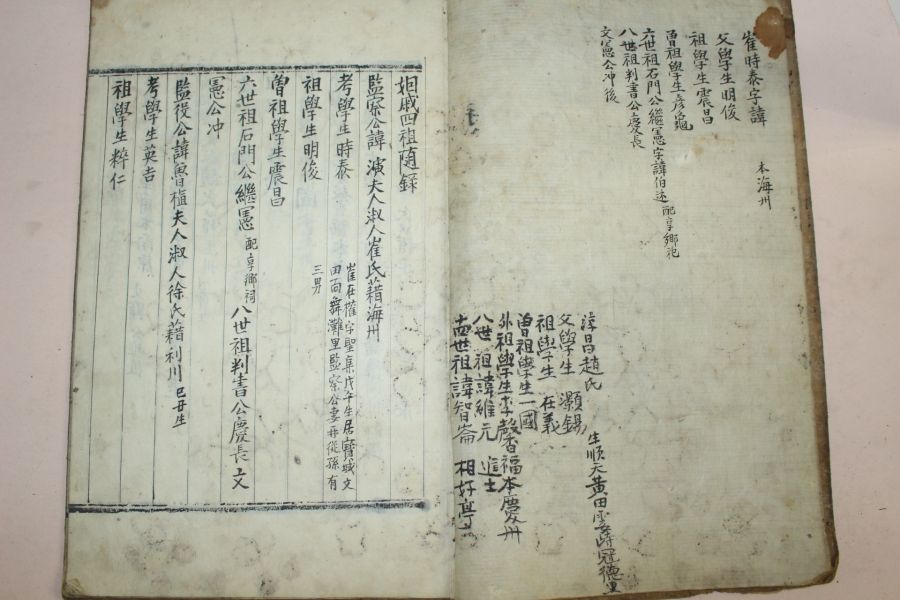 崔時泰字諱 本海州
父學生明俊
祖學生震昌
曾祖學生彦龜
六世祖石門公繼憲字諱伯述 配享鄉祀
八世祖判書公慶長
文憲公冲後
淳昌趙氏 生順天黃田面 冠德里
父學生 灝錫
祖學生 在義
曾祖學生一國
外祖學生李馨福本慶州
八世祖諱維元 進士
世祖諱智崙 相好亭
姻戚四祖隨錄
監察公諱演夫人淑人崔氏籍海州
考學生時泰 崔在權字聖集戊午生居寶城文
田面舞灘里監察公妻再從孫有
三男
祖學生明俊
曾祖學生震昌
六世祖石門公繼憲 配享鄉祠 八世祖判書公慶長 文
憲公冲
監役公諱魯植夫人淑人徐氏籍利川 己丑生
考學生英吉
祖學生粹仁